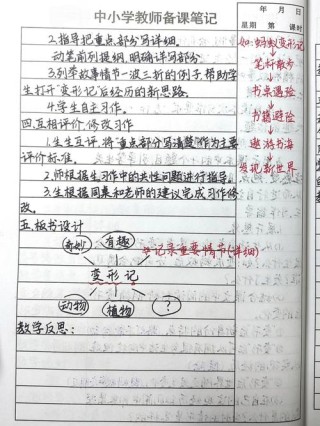 中小学教师备课笔记
年 月 日
星期 第 课时
2.指导把重点部分写详细。
动笔前列提纲,明确详写部分
3.列举故事情节一波三折的例子,帮助学
生打开"变形记"后经历的新思路。
4.学生自主习作。
四.互相评价,修改习作
1.生生互评,将"重点部分写清楚"作为主要
评价标准。
2.师根据生习作中的共性问题进行指导。
3.生根据同桌和老师的建议完成习作修
改。
五.板书设计
奇妙
有趣
变形记
动物
植物
?
记录重要情节(详细)
教学反思:
如:蚂蚁变形记
↓
笔杆散步
↓
书桌遇险
↓
书籍避险
↓
遨游书海
↓
发现新世界